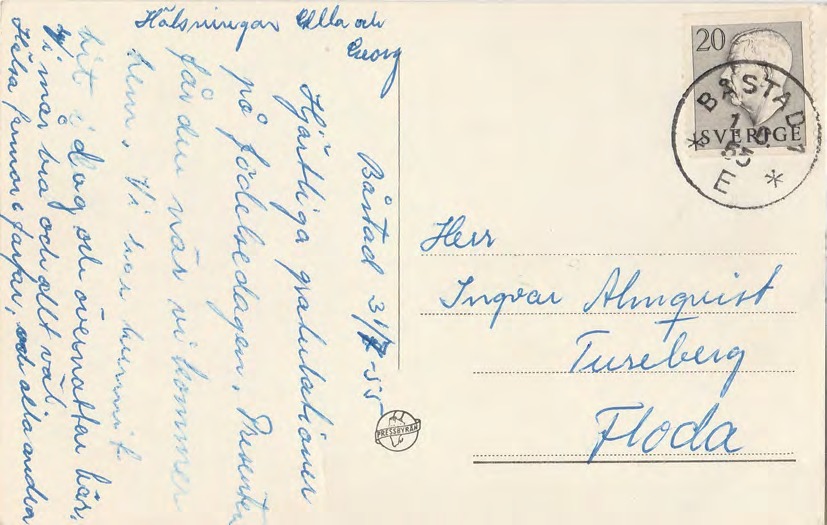 Båstad 31/7-55
Hjärtliga gratulationer
på födelsedagen. Presenten
får du när vi kommer
hem. Vi har hunnit
hit i dag och övernattar här.
Vi mår bra och allt väl.
Hälsa farmor farfar, och alla andra
Hälsningar Ulla och
Georg
20
SVERIGE
BÅSTAD 1
E
Herr
Ingvar Almquist
Tureberg
Floda
PRESSBYRÅN